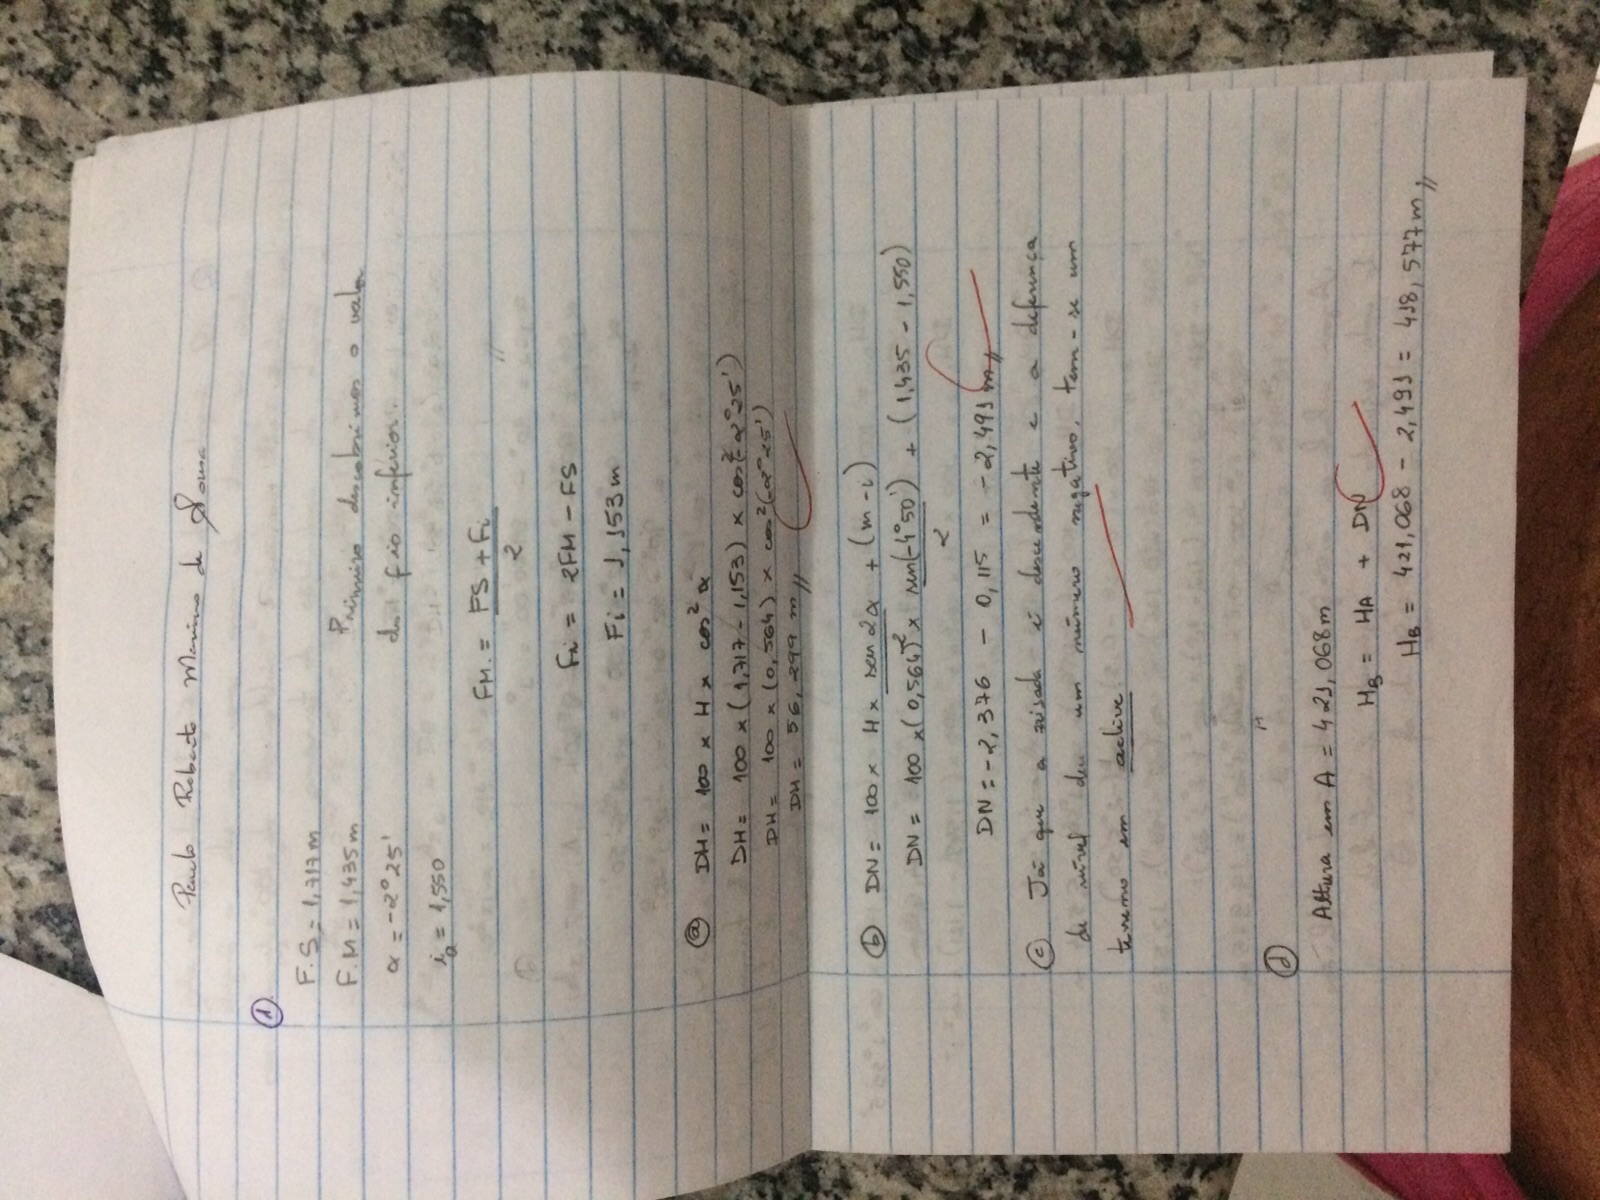 Paulo Roberto Marinho de Sousa
①
F.S = 1,717 m
F.M = 1,435 m Primeiro descobrimos o valor
α = -2°25' do fio inferior.
ia = 1,550
FM. = FS + Fi / 2
Fi = 2FM - FS
Fi = 1,153 m
ⓐ DH = 100 x H x cos² α
DH = 100 x (1,717 - 1,153) x cos²(-2°25')
DH = 100 x (0,564) x cos²(-2°25')
DH = 56,299 m //
ⓑ DN = 100 x H x sen 2α / 2 + (m - i)
DN = 100 x (0,564) x sen(-4°50') / 2 + (1,435 - 1,550)
DN = -2,376 - 0,115 = -2,491 m //
ⓒ Já que a visada é descendente e a diferença
de nível deu um número negativo, tem-se um
terreno em aclive.
ⓓ Altura em A = 421,068 m
HB = HA + DN
HB = 421,068 - 2,491 = 418,577 m //